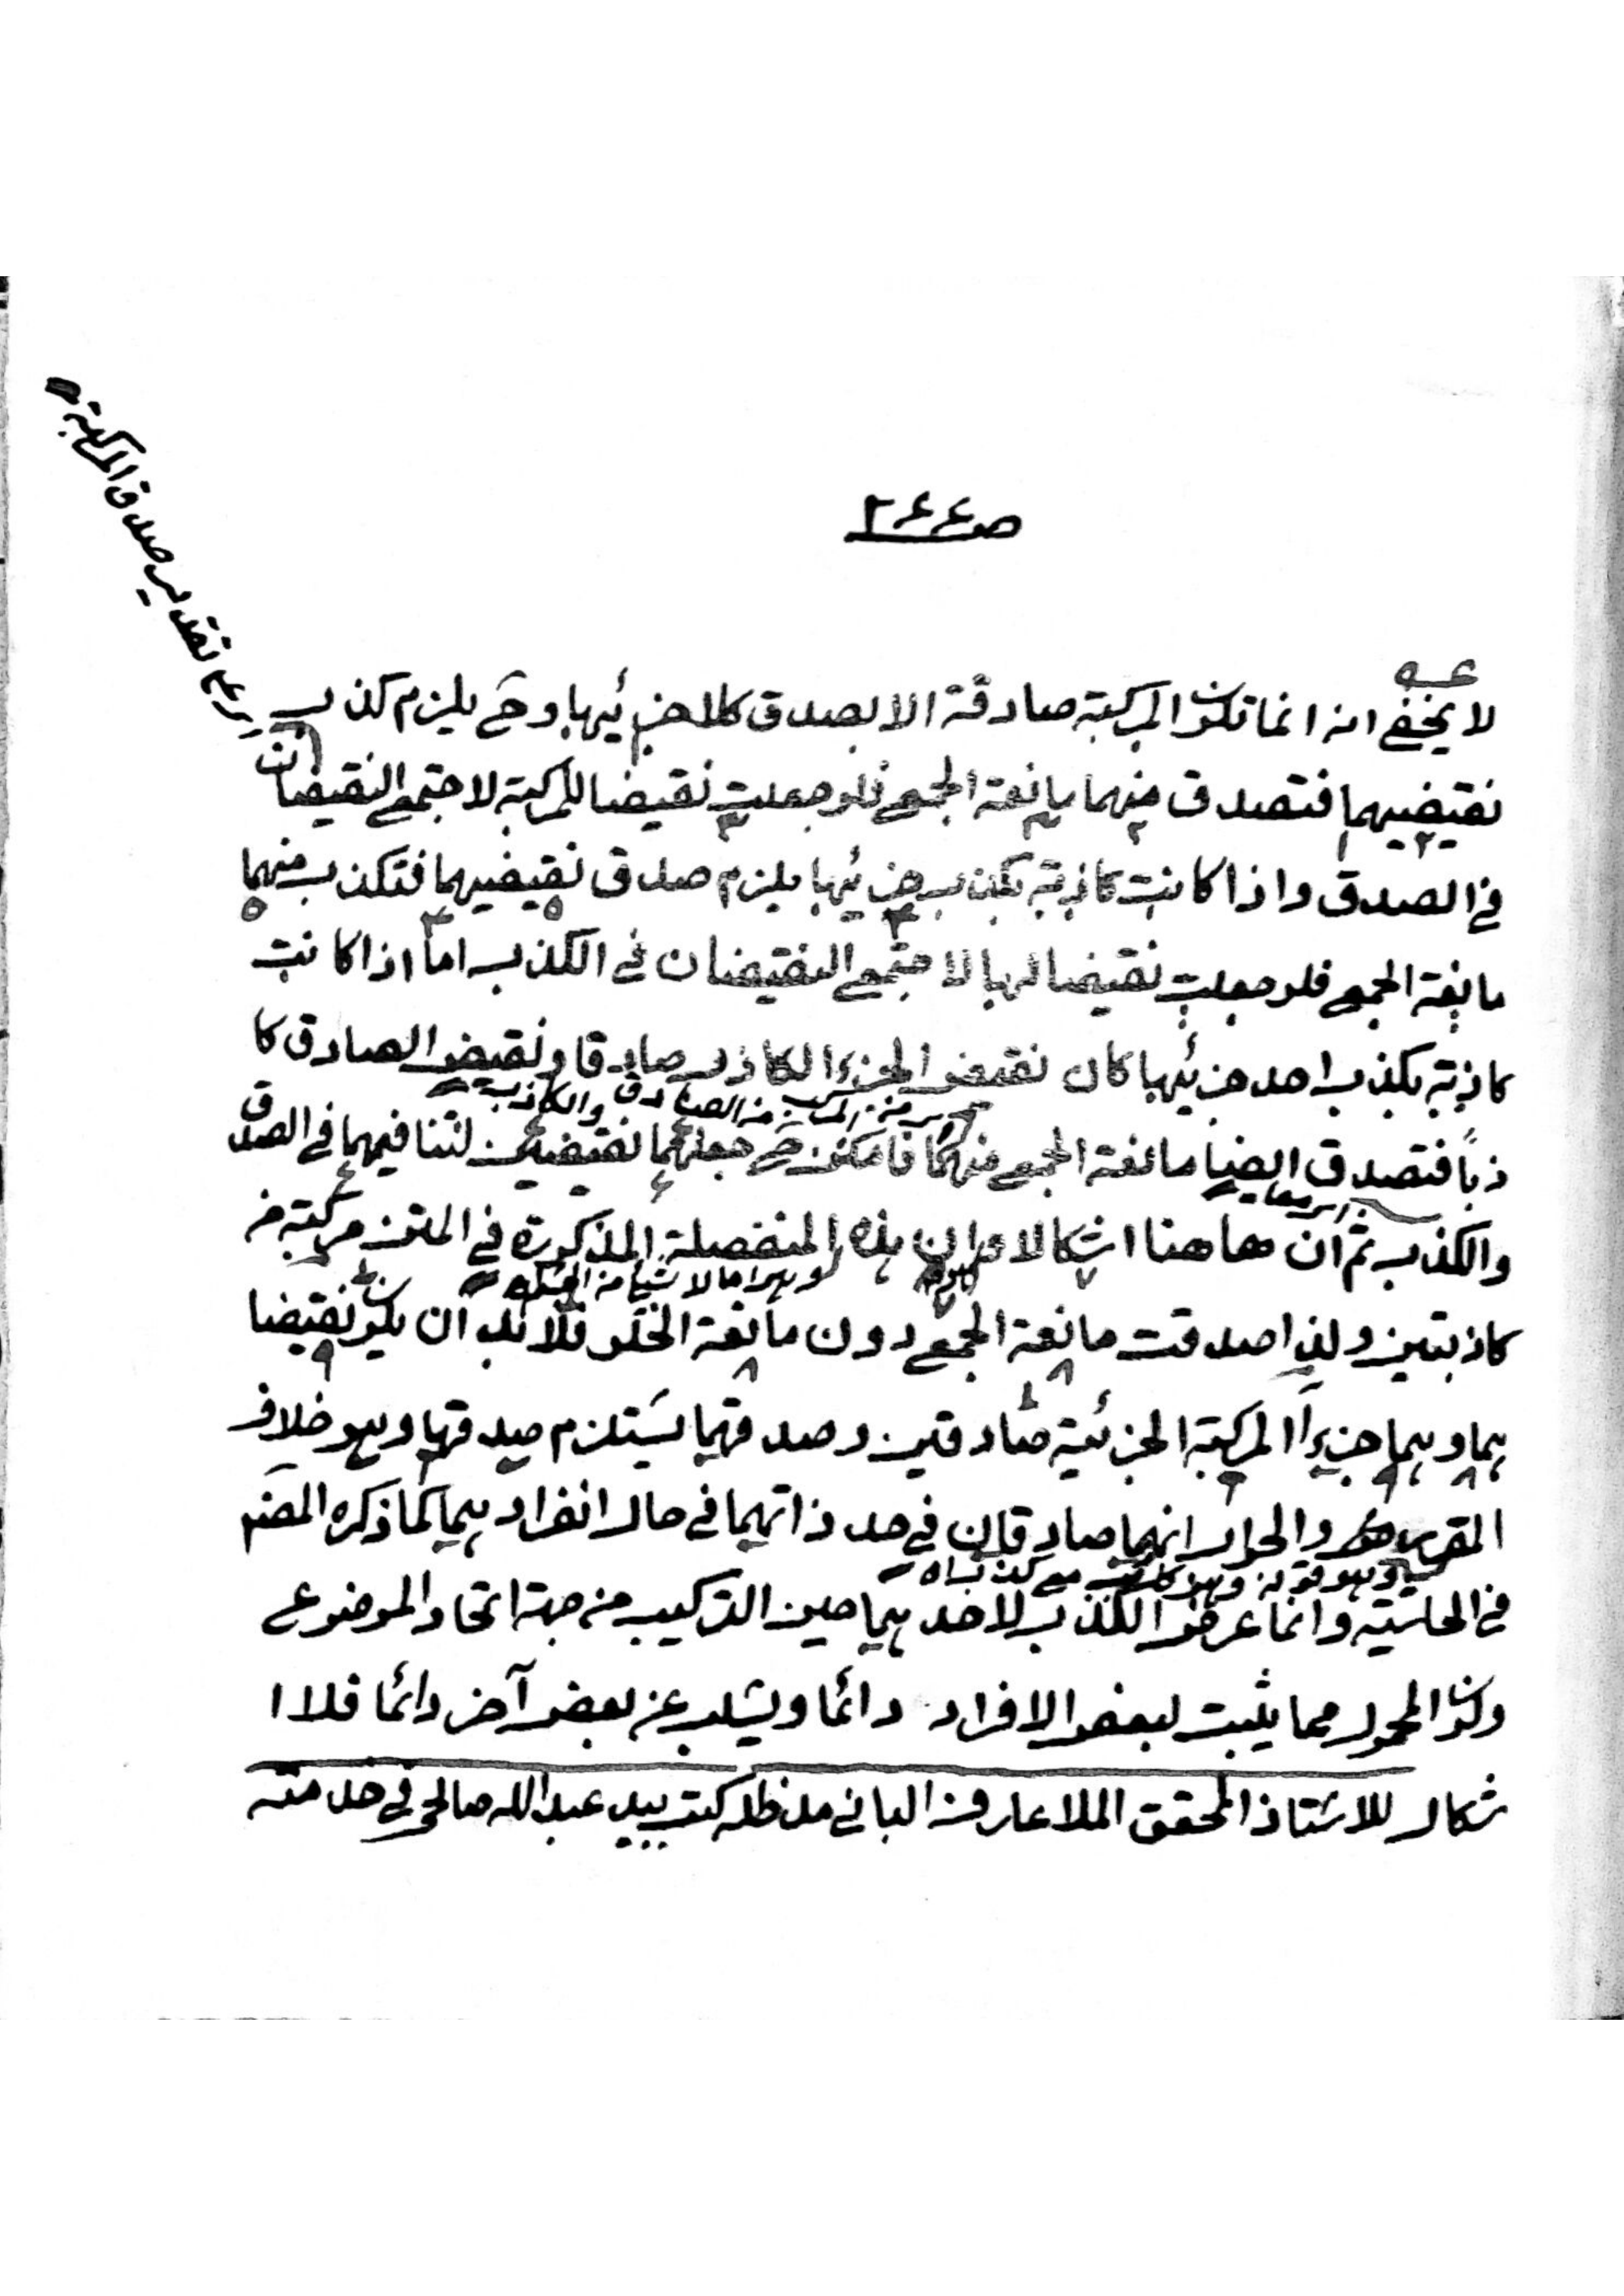 صـ ٢٤٤
عـه
لا يخفى انه انما تكون المركبة صادقة الا بصدق كلا جزئيها وح يلزم كذب
اى على تقدير صدق المركبة
نقيضيهما فتصدق منهما مانعة الجمع فلو جعلت نقيضا للمركبة لاجتمع النقيضان
فى الصدق واذا كانت كاذبة بكذب جزئيها يلزم صدق نقيضيهما فتكذب منهما
مانعة الجمع فلو جعلت نقيضا لها لاجتمع النقيضان فى الكذب اما اذا كانت
كاذبة بكذب احد جزئيها كان نقيض الجزء الكاذب صادقا ونقيض الصادق كا
من الصادق والكاذب
ذباً فتصدق ايضا مانعة الجمع منهما فامكن ح جعلهما نقيضين لتنافيهما فى الصدق
والكذب ثم ان هاهنا اشكالا هو ان هذه المنفصلة المذكورة فى المتن مركبة من
كاذبتين ولذا صدقت مانعة الجمع دون مانعة الخلو فلا بد ان يكون نقيضا
هما وهما جزءا المركبة الجزئية صادقتين وصدقهما يستلزم صدقها وهو خلاف
المقرر والجواب انهما صادقان فى حد ذاتهما فى حال انفرادهما كما ذكره المصنف
فى الحاشية وانما عرض الكذب لاحدهما حين التركيب من جهة اتحاد الموضوع
وكون المحمول مما يثبت لبعض الافراد دائما ويسلب عن بعض آخر دائما فلا ا
شكال للاستاذ المحقق الملا عارف البانى مد ظله كتبت بيد عبدالله صالحى فى خدمته